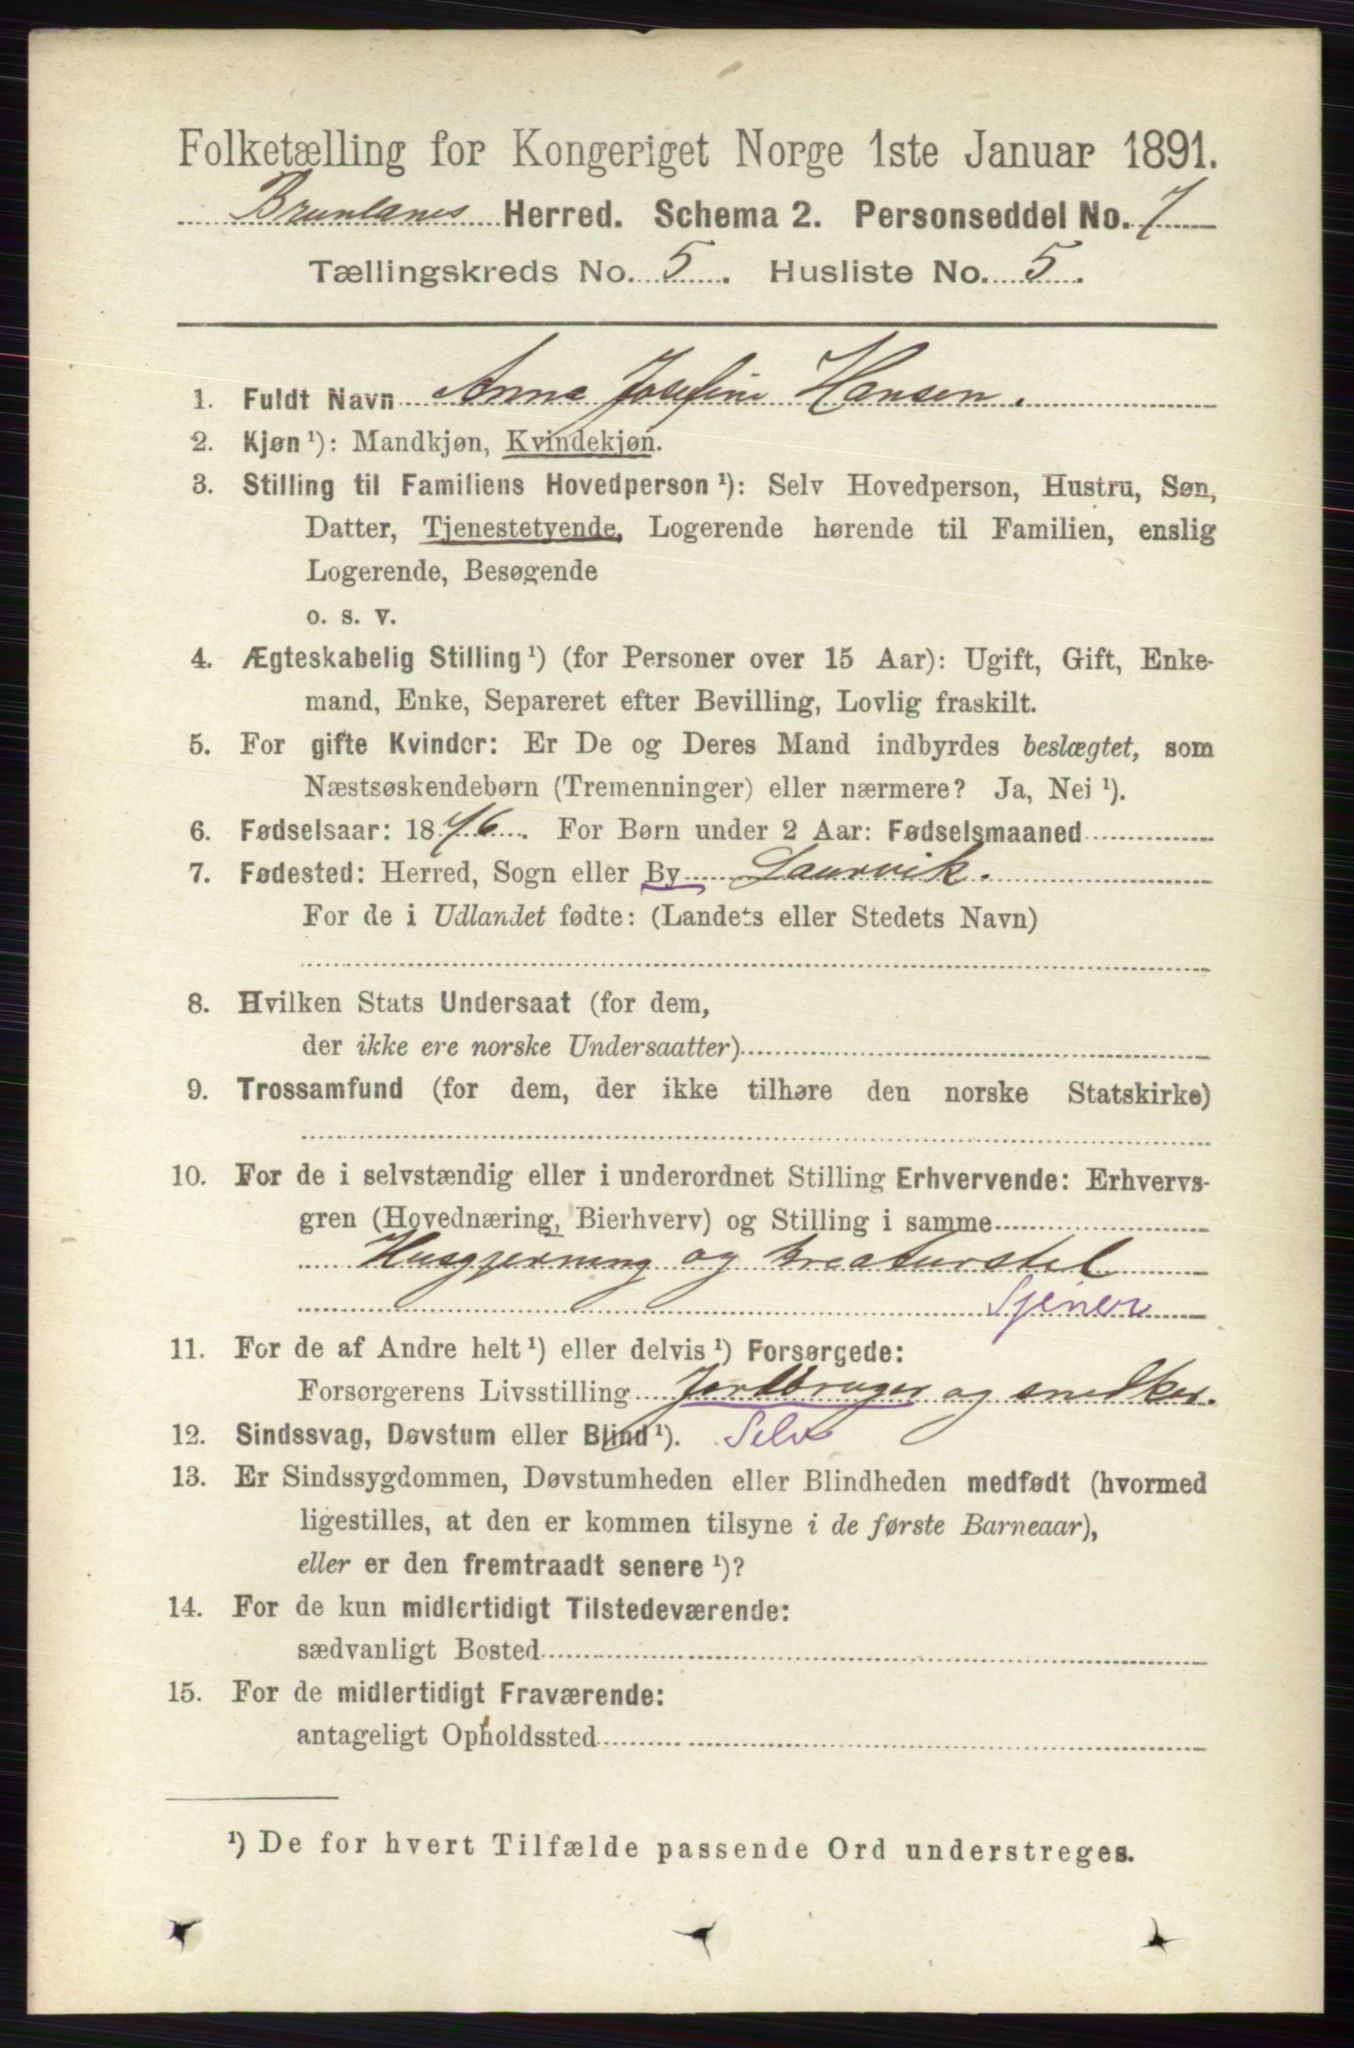 Folketælling for Kongeriget Norge 1ste Januar 1891.
Brunlanes Herred. Schema 2. Personseddel No. 7
Tællingskreds No. 5. Husliste No. 5.
1. Fuldt Navn Anne Josefine Hansen.
2. Kjøn ¹): Mandkjøn, Kvindekjøn.
3. Stilling til Familiens Hovedperson ¹): Selv Hovedperson, Hustru, Søn,
Datter, Tjenestetyende, Logerende hørende til Familien, enslig
Logerende, Besøgende
o. s. v.
4. Ægteskabelig Stilling ¹) (for Personer over 15 Aar): Ugift, Gift, Enke-
mand, Enke, Separeret efter Bevilling, Lovlig fraskilt.
5. For gifte Kvinder: Er De og Deres Mand indbyrdes beslægtet, som
Næstsøskendebørn (Tremenninger) eller nærmere? Ja, Nei ¹).
6. Fødselsaar: 1876. For Børn under 2 Aar: Fødselsmaaned
7. Fødested: Herred, Sogn eller By Laurvik.
For de i Udlandet fødte: (Landets eller Stedets Navn)
8. Hvilken Stats Undersaat (for dem,
der ikke ere norske Undersaatter)
9. Trossamfund (for dem, der ikke tilhøre den norske Statskirke)
10. For de i selvstændig eller i underordnet Stilling Erhvervende: Erhvervs-
gren (Hovednæring, Bierhverv) og Stilling i samme
Husgjerning og kreaturstel
Tjener
11. For de af Andre helt ¹) eller delvis ¹) Forsørgede:
Forsørgerens Livsstilling Jordbruger og snedker.
12. Sindssvag, Døvstum eller Blind ¹). Selv
13. Er Sindssygdommen, Døvstumheden eller Blindheden medfødt (hvormed
ligestilles, at den er kommen tilsyne i de første Barneaar),
eller er den fremtraadt senere ¹)?
14. For de kun midlertidigt Tilstedeværende:
sædvanligt Bosted
15. For de midlertidigt Fraværende:
antageligt Opholdssted
¹) De for hvert Tilfælde passende Ord understreges.